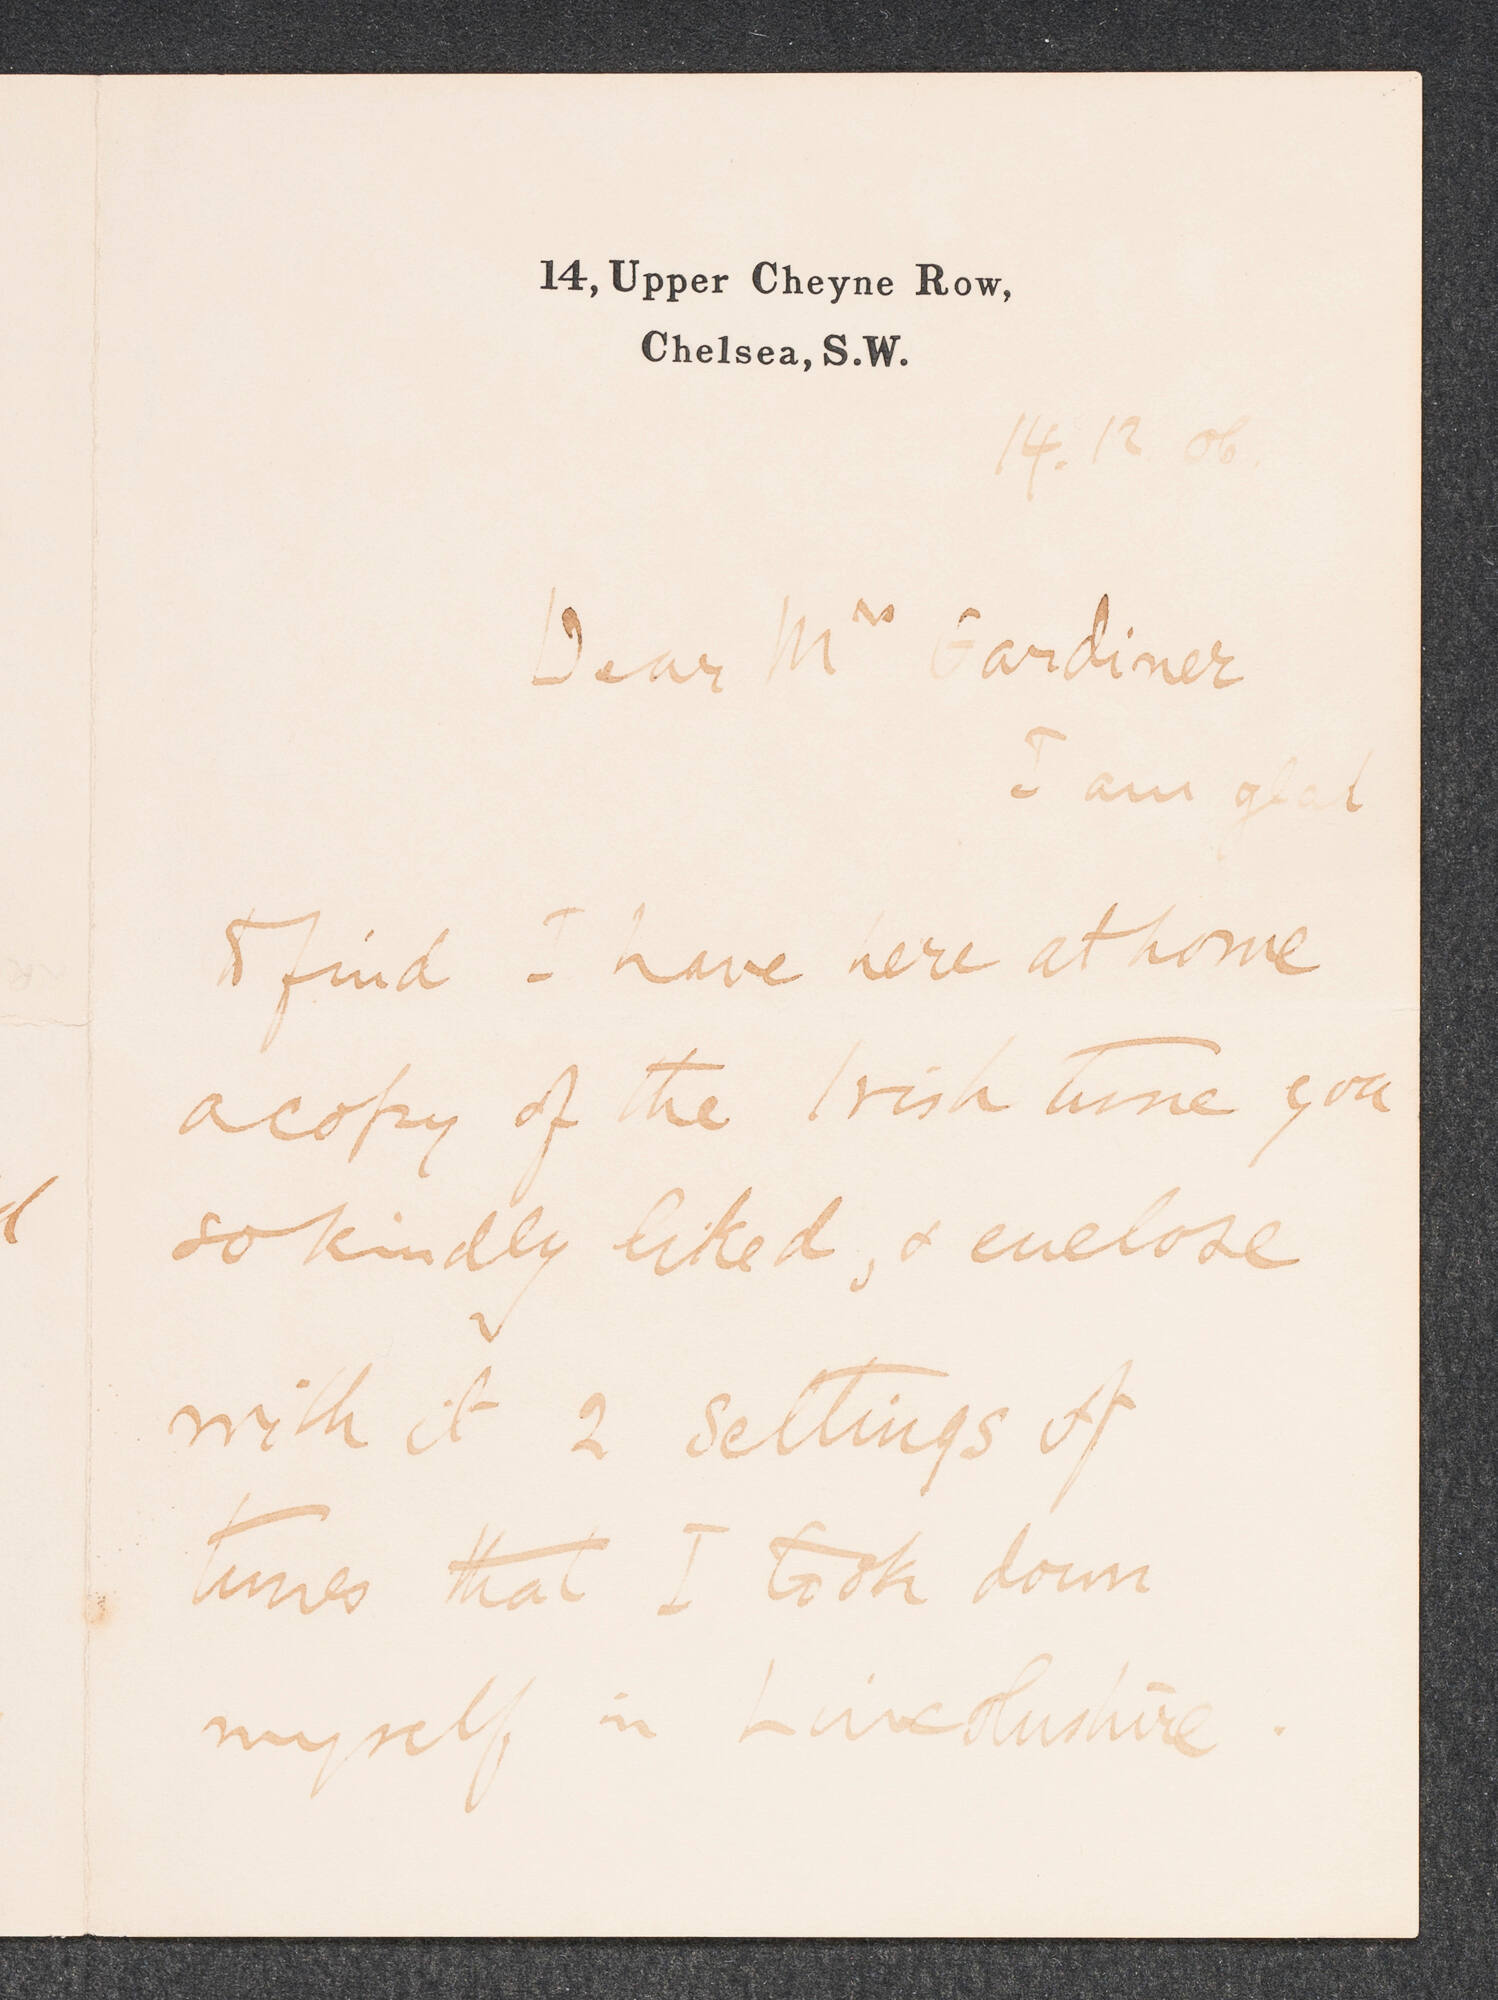 14, Upper Cheyne Row,
Chelsea, S.W.
14. 12. 06.
Dear Mrs Gardiner
I am glad
to find I have here at home
a copy of the Irish tune you
so kindly liked, & enclose
with it 2 settings of
tunes that I took down
myself in Lincolnshire.